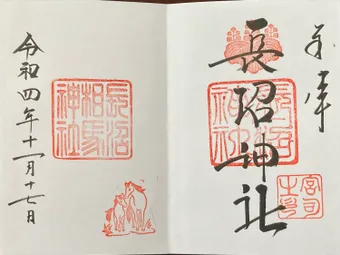 奉拝
長沼神社
宮司
之印
長沼
相馬
神社
令和四年十一月十七日